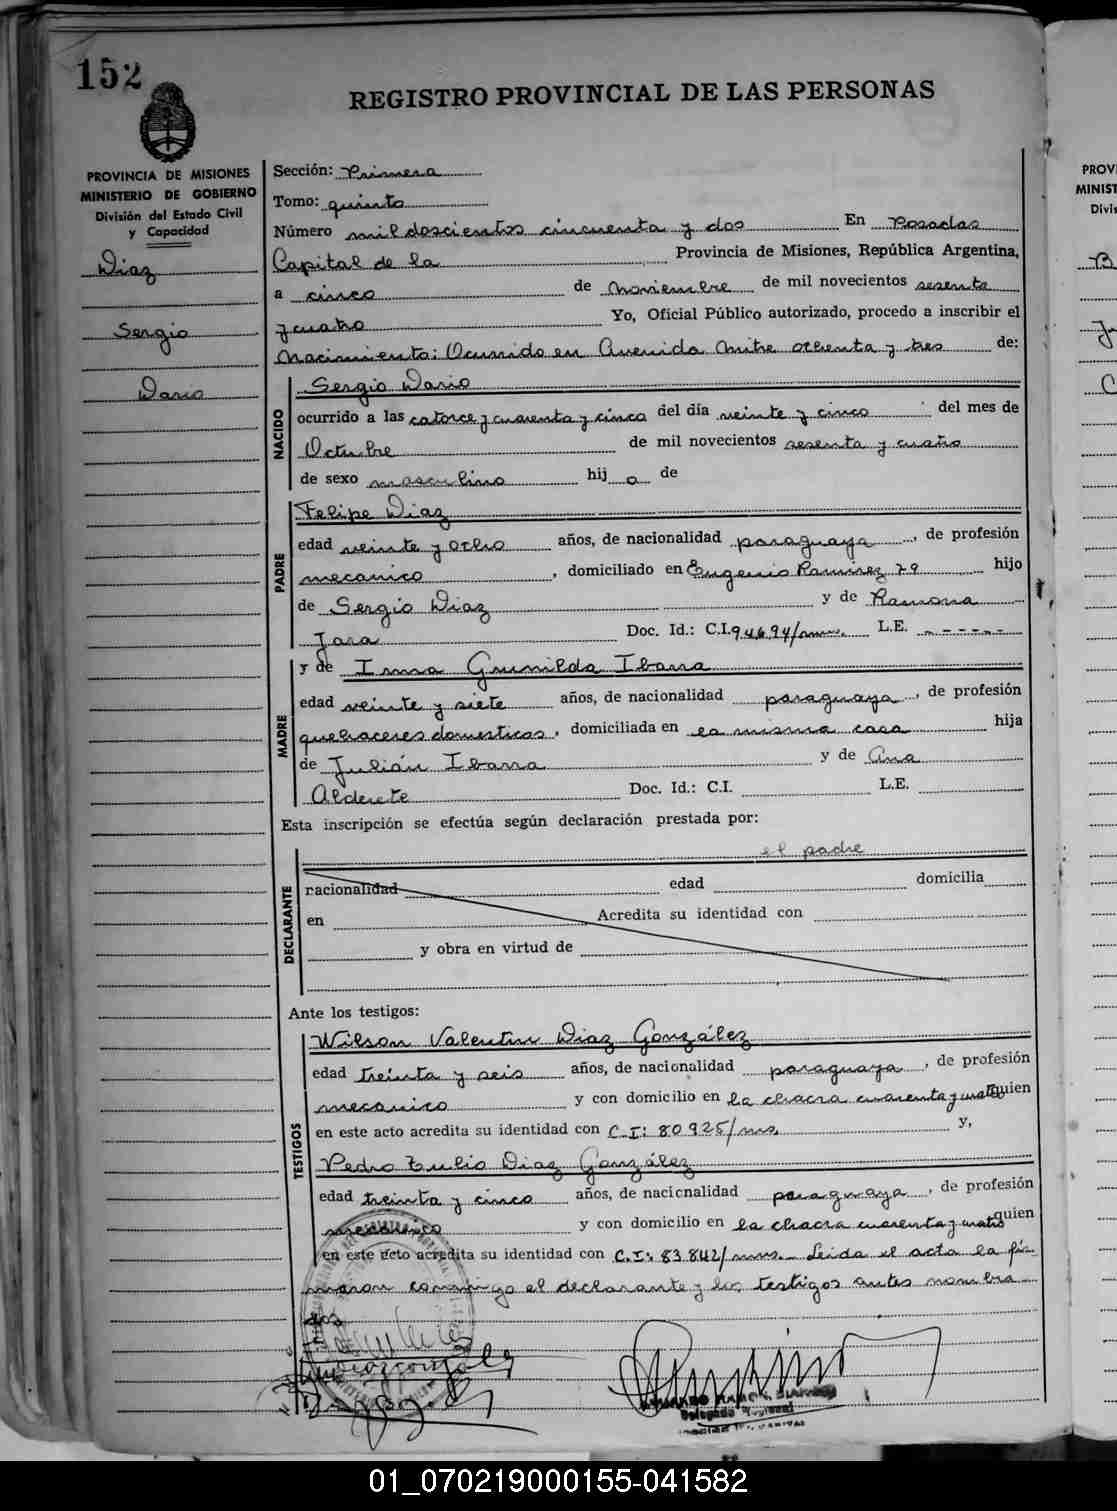 152
REGISTRO PROVINCIAL DE LAS PERSONAS
PROVINCIA DE MISIONES
MINISTERIO DE GOBIERNO
División del Estado Civil
y Capacidad
Diaz
Sergio
Dario
Sección: Primera
Tomo: quinto
Número mil doscientos cincuenta y dos En Posadas
Capital de la Provincia de Misiones, República Argentina,
a cinco de Noviembre de mil novecientos sesenta
y cuatro Yo, Oficial Público autorizado, procedo a inscribir el
Nacimiento: Ocurrido en Avenida Mitre ochenta y tres de:
NACIDO
Sergio Dario
ocurrido a las catorce y cuarenta y cinco del día veinte y cinco del mes de
Octubre de mil novecientos sesenta y cuatro
de sexo masculino hij o de
PADRE
Felipe Diaz
edad veinte y ocho años, de nacionalidad paraguaya, de profesión
mecanico, domiciliado en Eugenio Ramirez 79 hijo
de Sergio Diaz y de Ramona
Jara Doc. Id.: C.I. 94694/mns. L.E. ------
MADRE
y de Irma Grunilda Ibarra
edad veinte y siete años, de nacionalidad paraguaya, de profesión
quehaceres domesticos, domiciliada en la misma casa hija
de Julián Ibarra y de Ana
Alderete Doc. Id.: C.I. L.E.
Esta inscripción se efectúa según declaración prestada por:
DECLARANTE
el padre
racionalidad edad domicilia
en Acredita su identidad con
y obra en virtud de
Ante los testigos:
TESTIGOS
Wilson Valentin Diaz González
edad treinta y seis años, de nacionalidad paraguaya, de profesión
mecanico y con domicilio en la chacra cuarenta y cuatro quien
en este acto acredita su identidad con C.I: 80925/mns. y,
Pedro Tulio Diaz González
edad treinta y cinco años, de nacionalidad paraguaya, de profesión
mecanico y con domicilio en la chacra cuarenta y cuatro quien
en este acto acredita su identidad con C.I: 83.842/mns. Leida el acta la fir
maron conmigo el declarante y los testigos antes nombra
dos
Delegado Regional
01_070219000155-041582